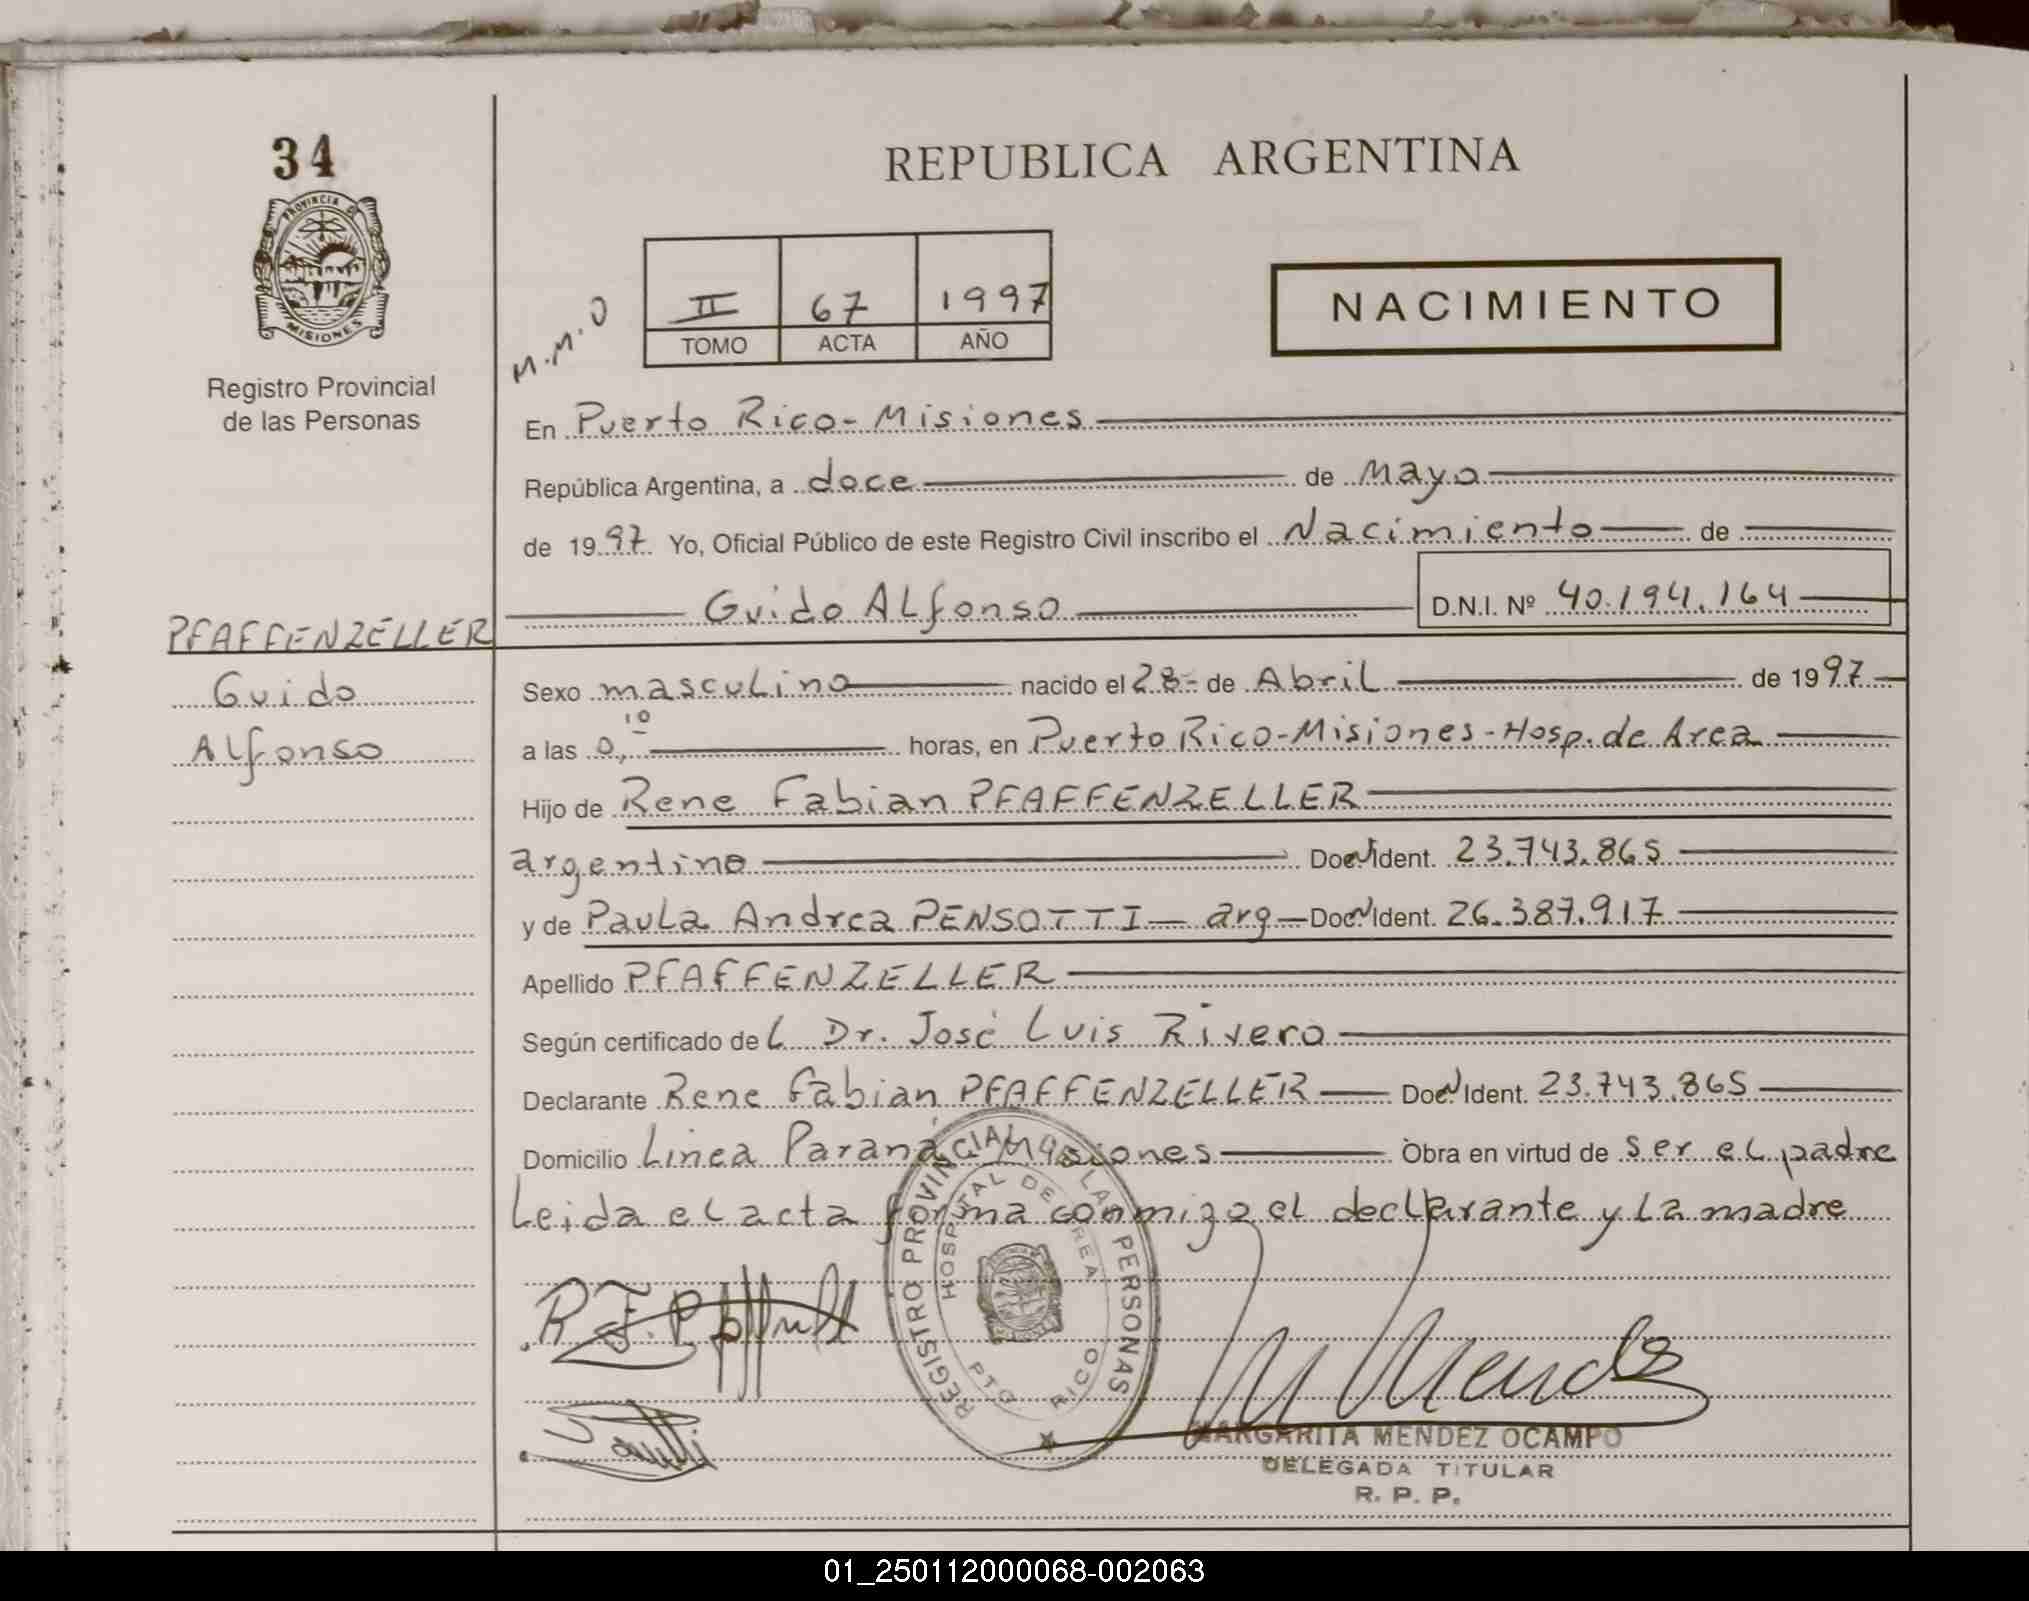 34
PROVINCIA DE
MISIONES
Registro Provincial
de las Personas
REPUBLICA ARGENTINA
M.M.O
II 67 1997
TOMO ACTA AÑO
NACIMIENTO
En Puerto Rico-Misiones
República Argentina, a doce de Mayo
de 1997 Yo, Oficial Público de este Registro Civil inscribo el Nacimiento de
Guido Alfonso D.N.I. Nº 40.194.164
PFAFFENZELLER
Guido
Alfonso
Sexo masculino nacido el 28- de Abril de 1997
a las 0,10 horas, en Puerto Rico-Misiones-Hosp. de Area
Hijo de Rene Fabian PFAFFENZELLER
argentino Doc. Ident. 23.743.865
y de Paula Andrea PENSOTTI arg Doc. Ident. 26.387.917
Apellido PFAFFENZELLER
Según certificado del Dr. José Luis Rivero
Declarante Rene Fabian PFAFFENZELLER Doc. Ident. 23.743.865
Domicilio Linea Paraná Misiones Obra en virtud de ser el padre
Leida el acta forma conmigo el declarante y la madre
REGISTRO PROVINCIAL DE LAS PERSONAS
HOSPITAL DE AREA
PTO RICO
MARGARITA MENDEZ OCAMPO
DELEGADA TITULAR
R. P. P.
01_250112000068-002063